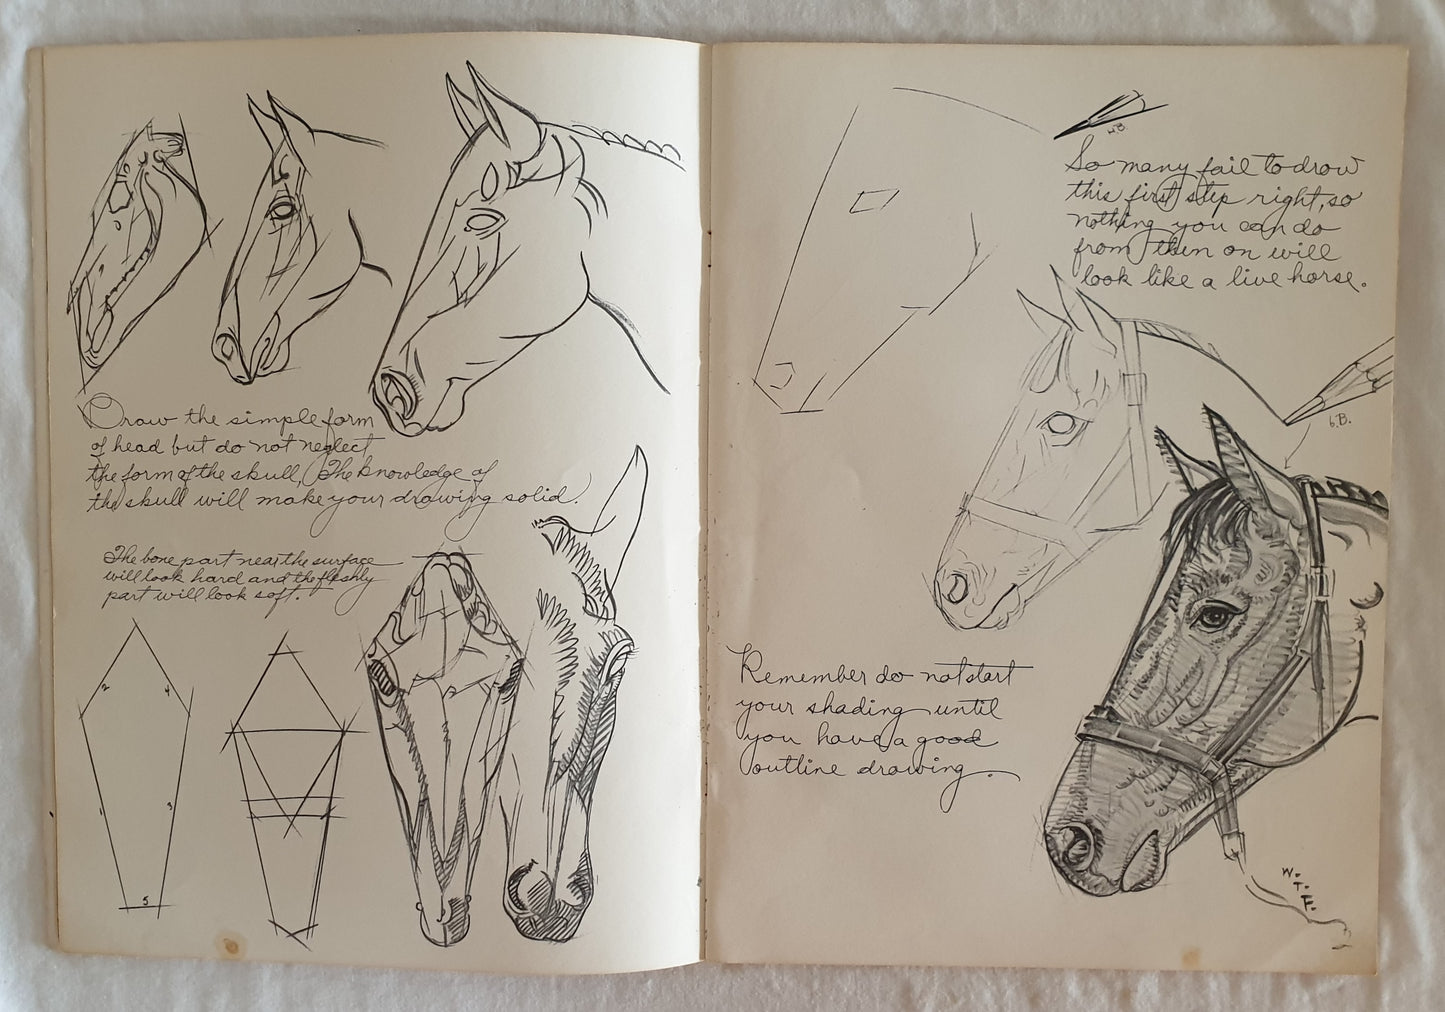 Draw the simple form
of head but do not neglect
the form of the skull, The knowledge of
the skull will make your drawing solid.
The bone part near the surface
will look hard and the fleshly
part will look soft.
2
4
1
3
5
4B.
So many fail to draw
this first step right, so
nothing you can do
from then on will
look like a live horse.
6B.
Remember do not start
your shading until
you have a good
outline drawing.
W.
T.
F.